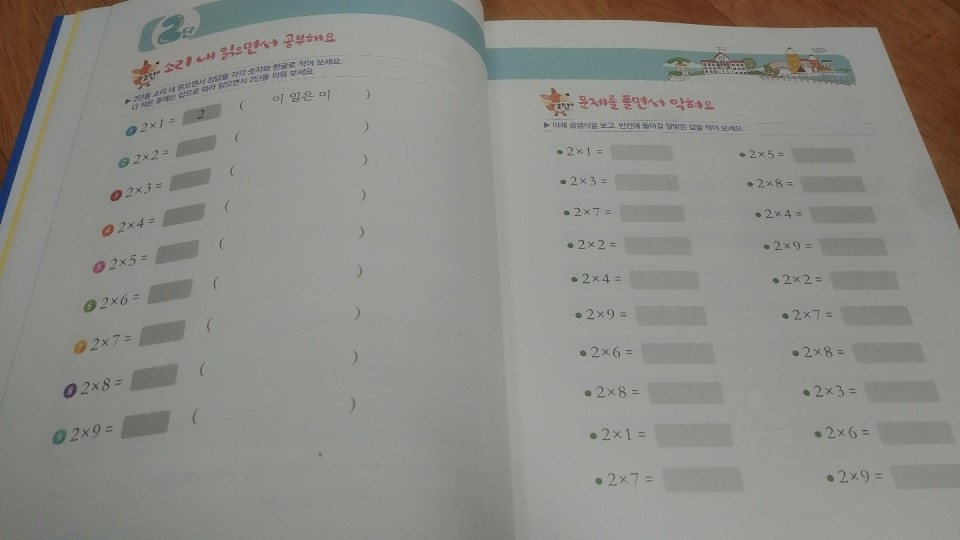 2단
2단 소리 내 읽으면서 공부해요
▶ 2단을 소리 내 읽으면서 정답을 각각 숫자와 한글로 적어 보세요.
다 적은 후에는 답으로 따라 읽으면서 2단을 외워 보세요.
1 2×1 = 2 ( 이 일은 이 )
2 2×2 = ( )
3 2×3 = ( )
4 2×4 = ( )
5 2×5 = ( )
6 2×6 = ( )
7 2×7 = ( )
8 2×8 = ( )
9 2×9 = ( )
2단 문제를 풀면서 익혀요
▶ 아래 곱셈식을 보고, 빈칸에 들어갈 알맞은 값을 적어 보세요.
• 2×1 =
• 2×3 =
• 2×7 =
• 2×2 =
• 2×4 =
• 2×9 =
• 2×6 =
• 2×8 =
• 2×1 =
• 2×7 =
• 2×5 =
• 2×8 =
• 2×4 =
• 2×9 =
• 2×2 =
• 2×7 =
• 2×8 =
• 2×3 =
• 2×6 =
• 2×9 =